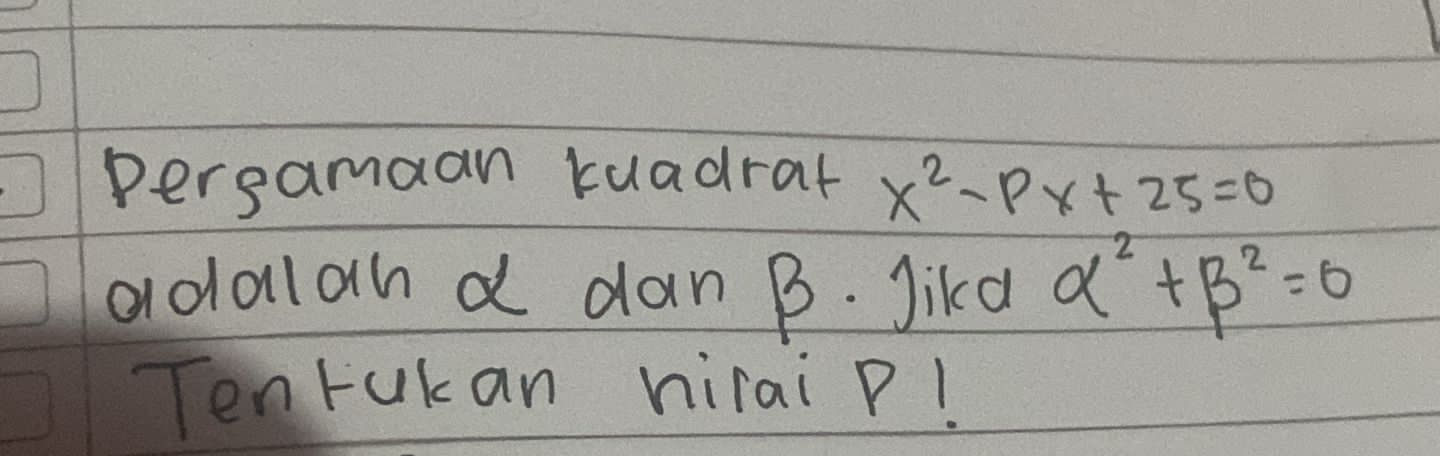 Persamaan kuadrat x² - Px + 25 = 0
adalah α dan β. Jika α² + β² = 0
Tentukan nilai P!